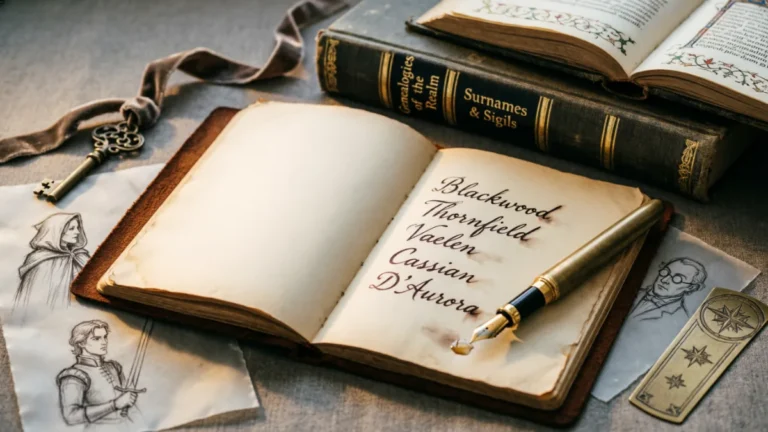 Genealogies
of the
Realm
Surnames
& Sigils
Blackwood
Thornfield
Vaelen
Cassian
D'Aurora